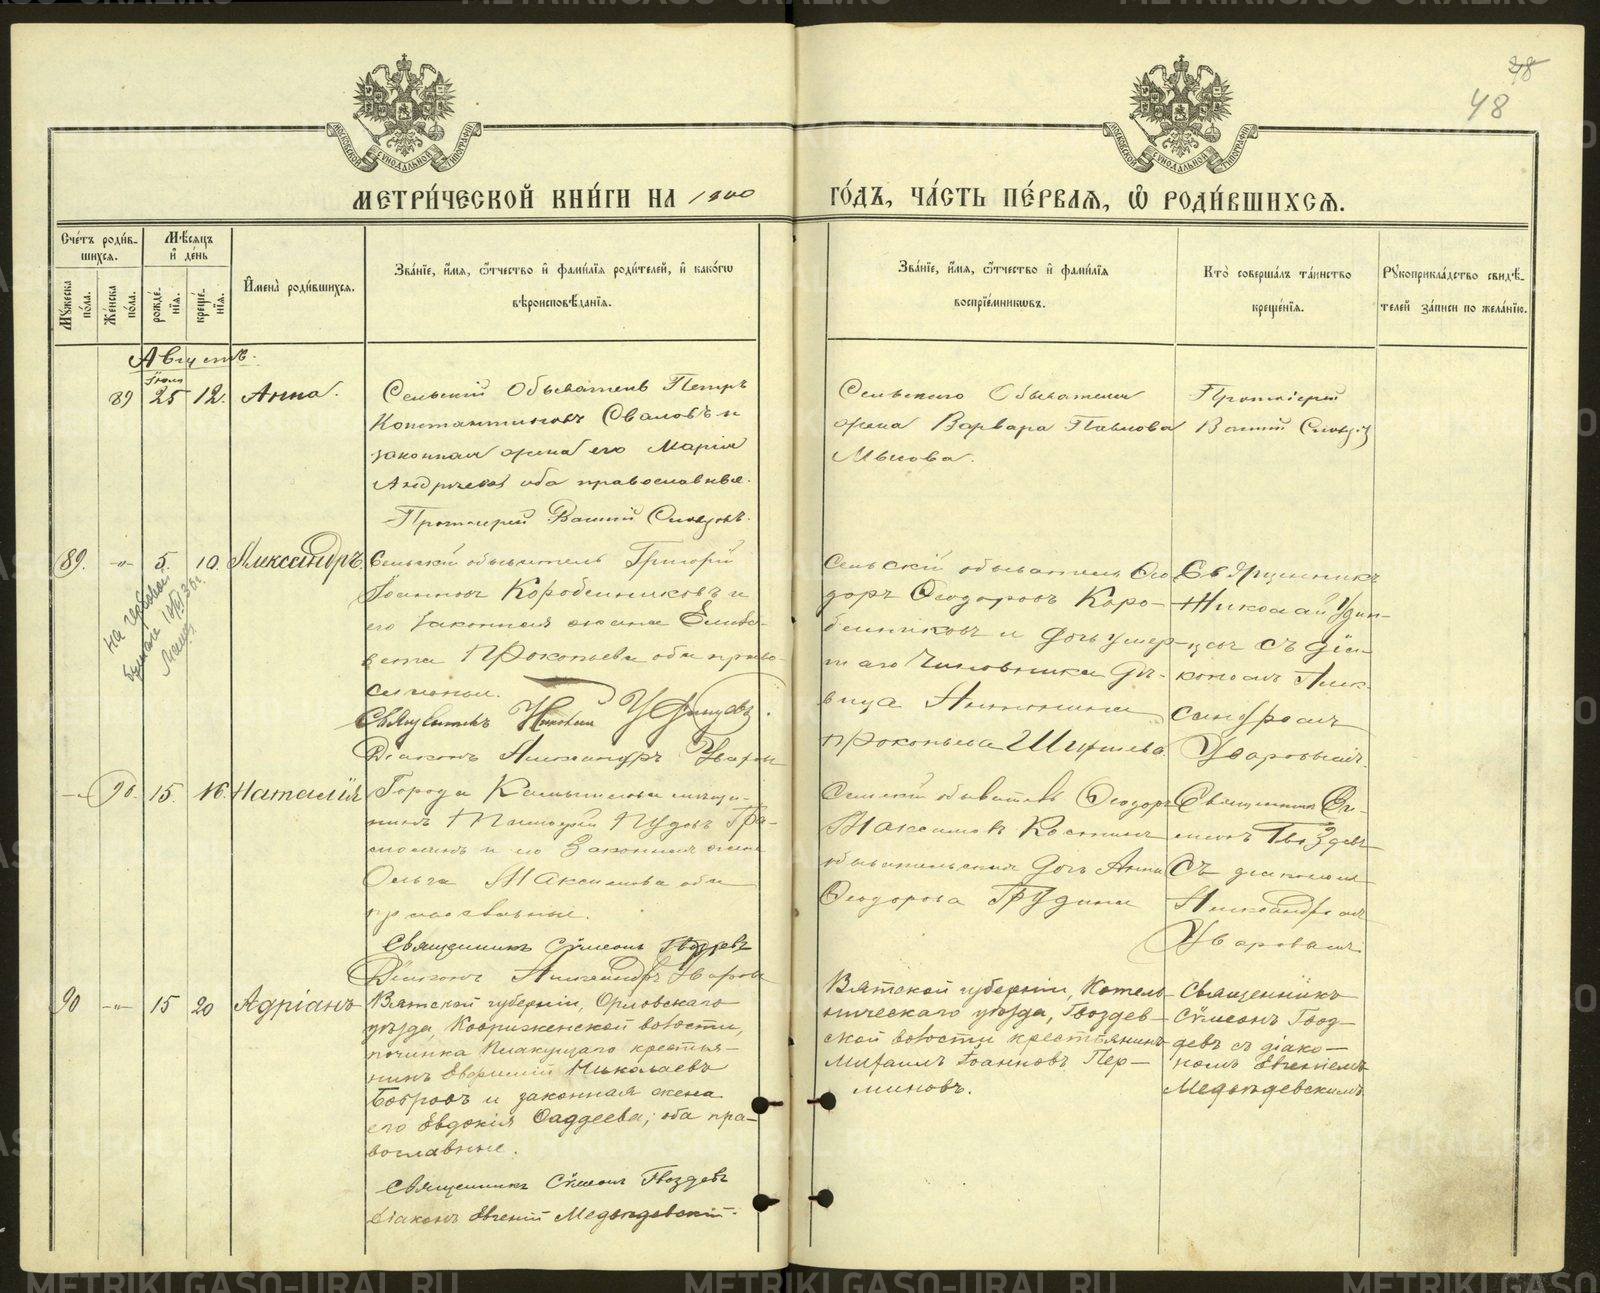 48
48
МОСКОВСКОЙ СѴНОДАЛЬНОЙ ТИПОГРАФІИ
МОСКОВСКОЙ СѴНОДАЛЬНОЙ ТИПОГРАФІИ
МЕТРИ́ЧЕСКОЙ КНИ́ГИ НА 1900
ГО́ДЪ, ЧА́СТЬ ПЕ́РВАѦ, Ѡ҆ РОДИ́ВШИХСѦ.
Сче́тъ роди́в-
шихся.
Мѣ́сяцъ
и҆ де́нь
Му́жеска
по́ла.
Же́нска
по́ла.
рожде́-
нїя.
креще́-
нїя.
И҆мена̀ роди́вшихся.
Зва́нїе, и҆́мя, ѻ҆́тчество и҆ фами́лїя роди́телей, и҆ како́гѡ
вѣроисповѣ́данїя.
Зва́нїе, и҆́мя, ѻ҆́тчество и҆ фами́лїя
воспрїе́мникѡвъ.
Кто̀ соверша́лъ та́инство
креще́нїя.
Рукоприкла́дство свидѣ́-
телей за́писи по жела́нїю.
Августъ.
Іюля
89 25 12. Анна.
Сельскій Обыватель Петръ
Константиновъ Сваловъ и
законная жена его Марія
Андреева оба православные.
Протоіерей Василій Словцовъ.
Сельскаго Обывателя
жена Варвара Павлова
Протоіерей
Василій Словцо
89. -"- 5. 10. Александръ.
на гербовой
бумаге
Сельскій обыватель Григорій
Іоанновъ Коробейниковъ и
его законная жена Елиса-
вета Прокопьева оба право-
славные.
Священникъ Николай Удинцевъ.
Діаконъ Александръ Уваровъ
Сельскій обыватель Ѳео-
доръ Ѳеодоровъ Коро-
бейниковъ и дочь умер-
шаго Чиновника дѣ-
вица Антонина
Прокопьева
Священникъ
Николай Удин-
цевъ съ діа-
кономъ Алек-
сандромъ
Уваровымъ.
90. 15. 16. Наталія
Города Камышлова мѣща-
нинъ Тимоѳей Пудовъ
и его законная жена
Ольга Максимова оба
православные.
Священникъ Сѵмеонъ Гвоздевъ
Діаконъ Александръ Уваровъ
Сельскій обыватель Ѳеодоръ
Максимовъ Костинъ
обывательская дочь Анна
Ѳеодорова Грудина
Священникъ Сѵ-
меонъ Гвоздевъ
Съ діакономъ
Александромъ
Уваровымъ.
90 -"- 15 20 Адріанъ
Вятской губерніи, Орловскаго
уѣзда, волости,
починка крестья-
нинъ Евфимій Николаевъ
Бобровъ и законная жена
его Евдокія Ѳаддеева; оба пра-
вославные.
Священникъ Сѵмеонъ Гвоздевъ
Діаконъ Евгеній Медвѣдевскій.
Вятской губерніи, Котель-
ническаго уѣзда, Гвоздев-
ской волости крестьянинъ
Михаилъ Іоанновъ Пер-
миновъ.
Священникъ
Сѵмеонъ Гвоз-
девъ съ діако-
номъ Евгеніемъ
Медвѣдевскимъ.
METRIKI.GASO-URAL.RU